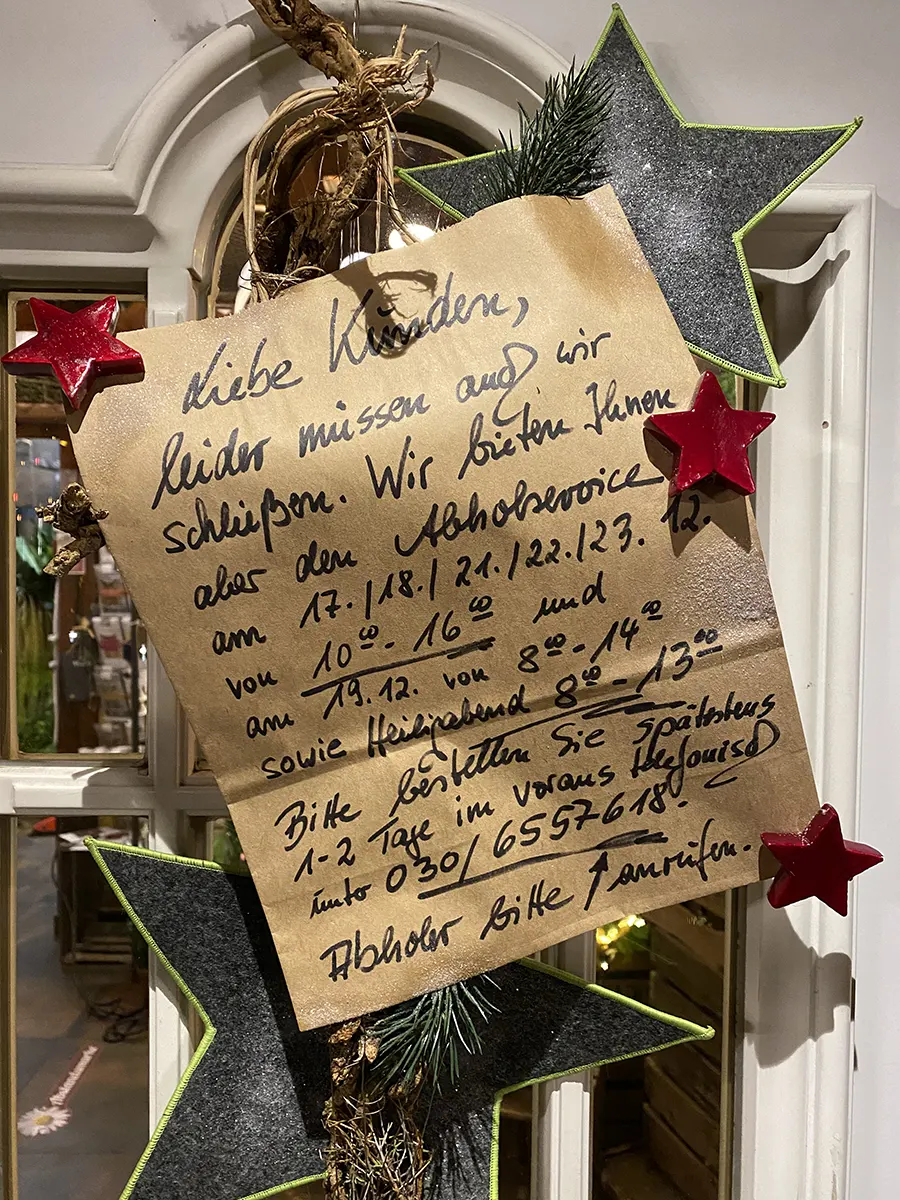 Liebe Kunden,
leider müssen auch wir
schließen. Wir bieten Ihnen
aber den Abholservice
am 17./18./21./22./23. 12.
von 10⁰⁰ - 16⁰⁰ und
am 19.12. von 8⁰⁰ - 14⁰⁰
sowie Heiligabend 8⁰⁰ - 13⁰⁰
Bitte bestellen Sie spätestens
1-2 Tage im voraus telefonisch
unter 030/6557618.
Abholer bitte ↑ anrufen.